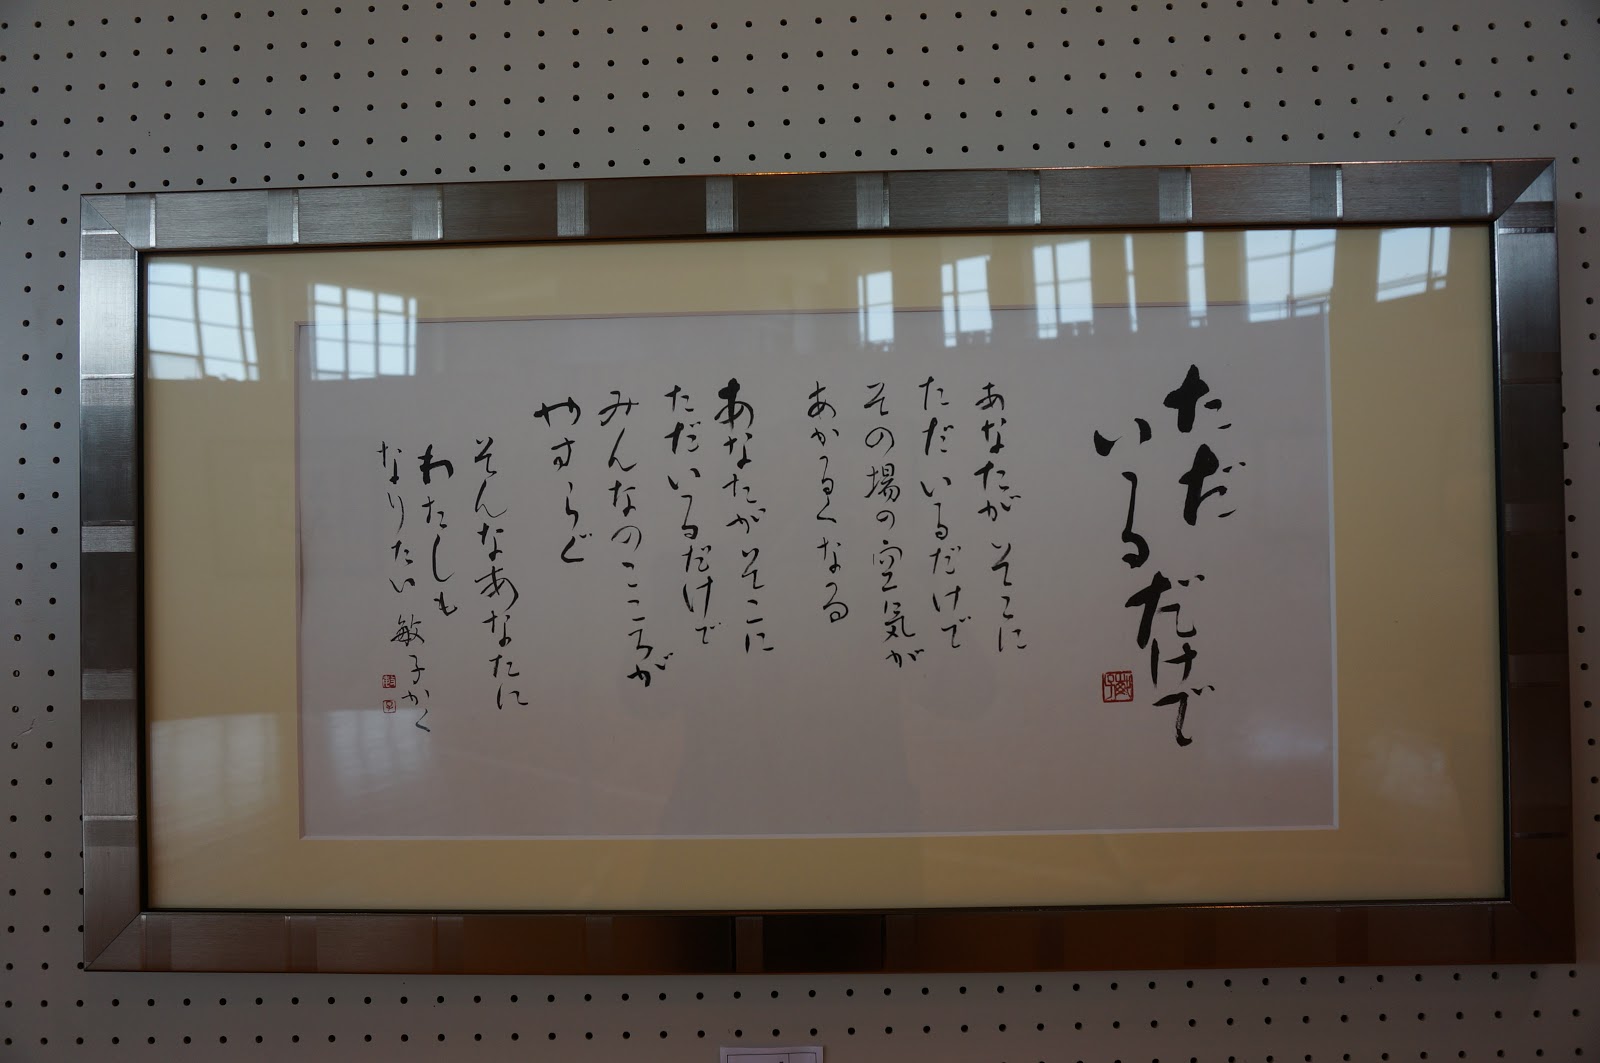 ただ
いるだけで
あなたがそこに
ただいるだけで
その場の空気が
あかるくなる
あなたがそこに
ただいるだけで
みんなのこころが
やすらぐ
そんなあなたに
わたしも
なりたい 敏子かく